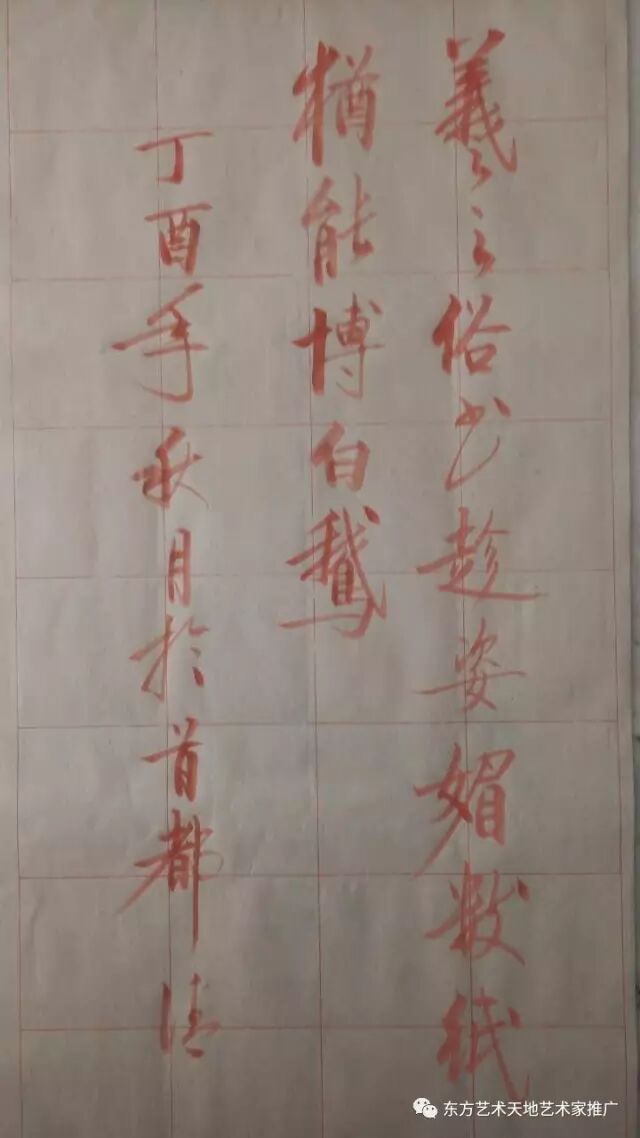 羲之俗书趁姿媚数纸
犹能博白鹅
丁酉年秋月於首都
东方艺术天地艺术家推广